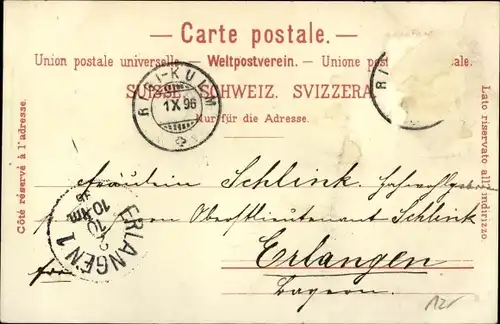 — Carte postale. —
Union postale universelle. — Weltpostverein. — Unione pos tale.
SUISSE. SCHWEIZ. SVIZZERA
Nur für die Adresse.
Côté réservé à l'adresse.
Lato riservato all'indirizzo
RIGI-KULM
1 X 96
RI
Fräulein Schlink.
Oberstlieutenant Schlink
Erlangen
Bayern.
ERLANGEN 1
2 10
10 Vm
96